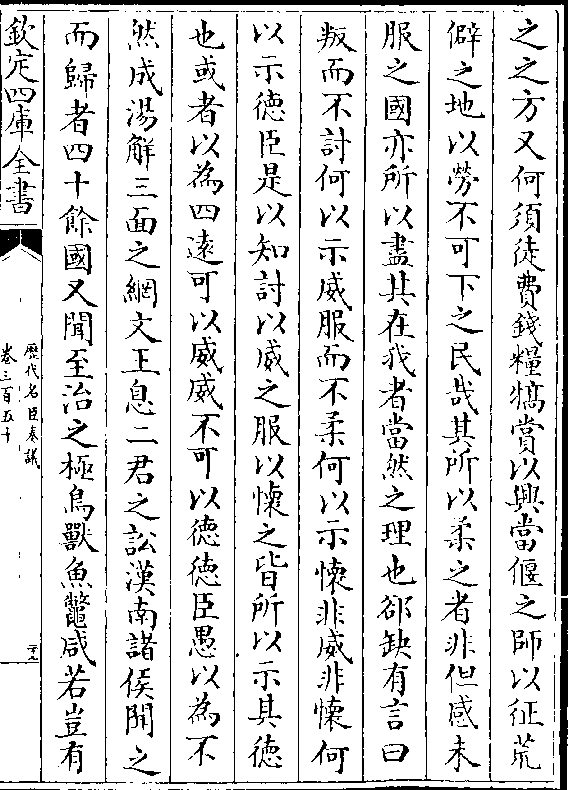 之之方又何須徒費錢糧犒賞以興當偃之師以征荒
僻之地以勞不可下之民哉其所以柔之者非但感未
服之國亦所以盡其在我者當然之理也郤缺有言曰
叛而不討何以示威服而不柔何以示懷非威非懷何
以示德臣是以知討以威之服以懷之皆所以示其德
也或者以為四遠可以威威不可以德德臣愚以為不
然成湯解三面之網文王息二君之訟漢南諸侯聞之
而歸者四十餘國又聞至治之極鳥獸魚鼈咸若豈有
欽定四庫全書
歷代名臣奏議
卷三百五十